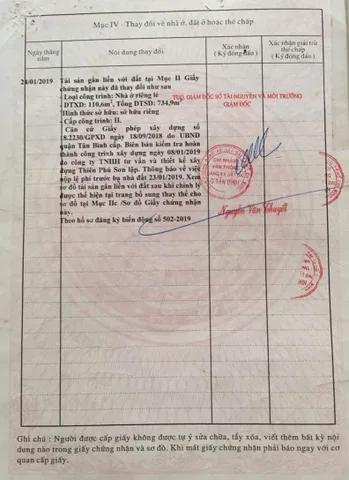 Mục IV - Thay đổi về nhà ở, đất ở hoặc thế chấp
Ngày tháng năm
Nội dung thay đổi
Xác nhận (Ký đóng dấu)
Xác nhận giải trừ thế chấp (Ký đóng dấu)
24/01/2019
Tài sản gắn liền với đất tại Mục II Giấy
chứng nhận này đã thay đổi như sau
- Loại công trình: Nhà ở riêng lẻ
- DTXD: 110,6m², Tổng DTSD: 734,9m²
Hình thức sở hữu: sở hữu riêng
- Cấp công trình: II.
Căn cứ Giấy phép xây dựng số
8.2230/GPXD ngày 18/09/2018 do UBND
quận Tân Bình cấp. Biên bản kiểm tra hoàn
thành công trình xây dựng ngày 08/01/2019
do công ty TNHH tư vấn và thiết kế xây
dựng Thiên Phú Sơn lập. Thông báo về việc
nộp lệ phí trước bạ nhà đất 23/01/2019. Xem
sơ đồ tài sản gắn liền với đất sau khi chỉnh lý
được thể hiện tại trang bổ sung thay thế cho
sơ đồ tại Mục IIc /Sơ đồ Giấy chứng nhận
này.
Theo hồ sơ đăng ký biến động số 502-2019
TUQ. GIÁM ĐỐC SỞ TÀI NGUYÊN VÀ MÔI TRƯỜNG
GIÁM ĐỐC
CHI NHÁNH
VĂN PHÒNG
Nguyễn Văn Khuyết
Ghi chú : Người được cấp giấy không được tự ý sửa chữa, tẩy xóa, viết thêm bất kỳ nội
dung nào trong giấy chứng nhận và sơ đồ. Khi mất giấy chứng nhận phải báo ngay với cơ
quan cấp giấy.